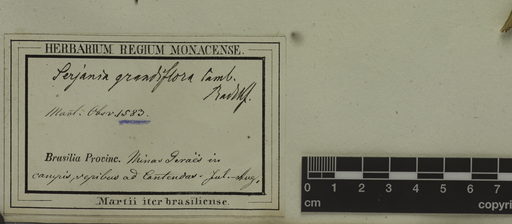 HERBARIUM REGIUM MONACENSE.
Serjania grandiflora Camb.
Radlkf.
Mart. Obsv. 1583.
Brasilia Provinc. Minas Geraës in
campis, vepribus ad Contendas. Jul.-Aug.
Martii iter brasiliense.
0 1 2 3 4 5 6 7
cm copyri